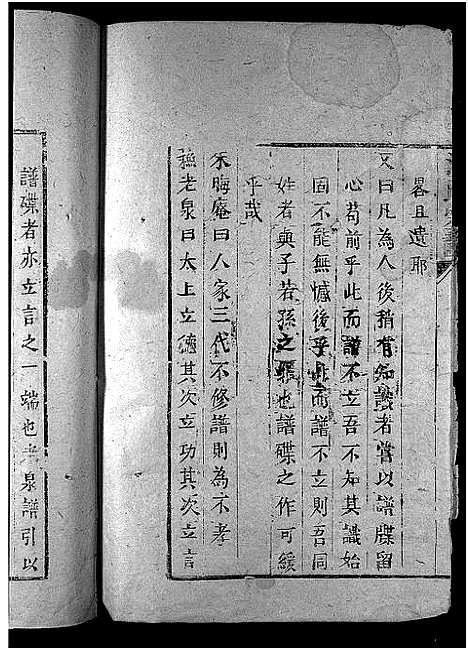 畧且遺耶
又曰凡為人後稍有知識者當以譜牒留
心苟前乎此而譜不立吾不知其識始
固不能無憾後乎此而譜不立則吾同
姓者與子若孫之責也譜牒之作可緩
乎哉
朱晦庵曰人家三代不修譜則為不孝
蘇老泉曰太上立德其次立功其次立言
譜牒者亦立言之一端也老泉譜引以